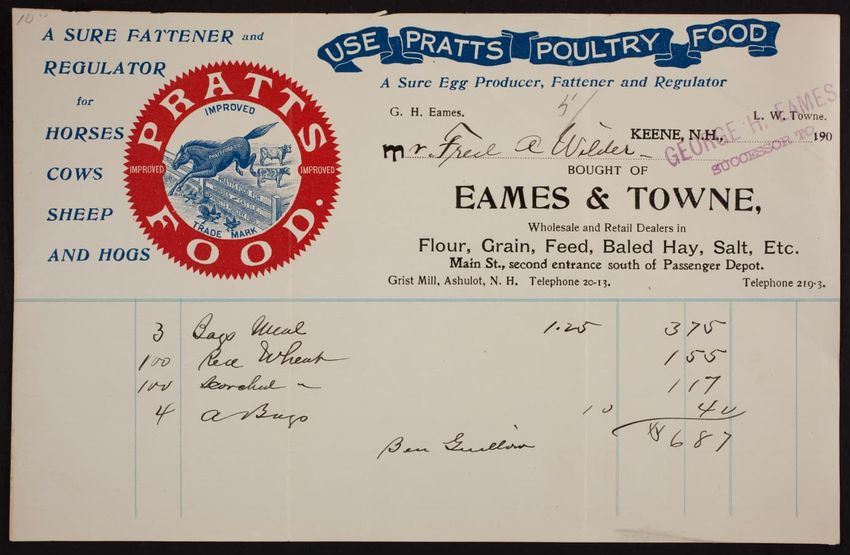 10
A SURE FATTENER and
REGULATOR
for
HORSES
COWS
SHEEP
AND HOGS
PRATTS
FOOD.
IMPROVED
IMPROVED
IMPROVED
PRATTS FOOD FOR
TRADE MARK
USE PRATTS POULTRY FOOD
A Sure Egg Producer, Fattener and Regulator
G. H. Eames.
L. W. Towne.
GEORGE H. EAMES
SUCCESSOR TO
KEENE, N.H., 190
Mr. Fred A Wilder
BOUGHT OF
EAMES & TOWNE,
Wholesale and Retail Dealers in
Flour, Grain, Feed, Baled Hay, Salt, Etc.
Main St., second entrance south of Passenger Depot.
Grist Mill, Ashulot, N. H. Telephone 20-13. Telephone 219-3.
3 Bags Meal 1.25 375
100 Wheat 155
100 Scorched " 117
4 a Bags 10 40
Ben $687